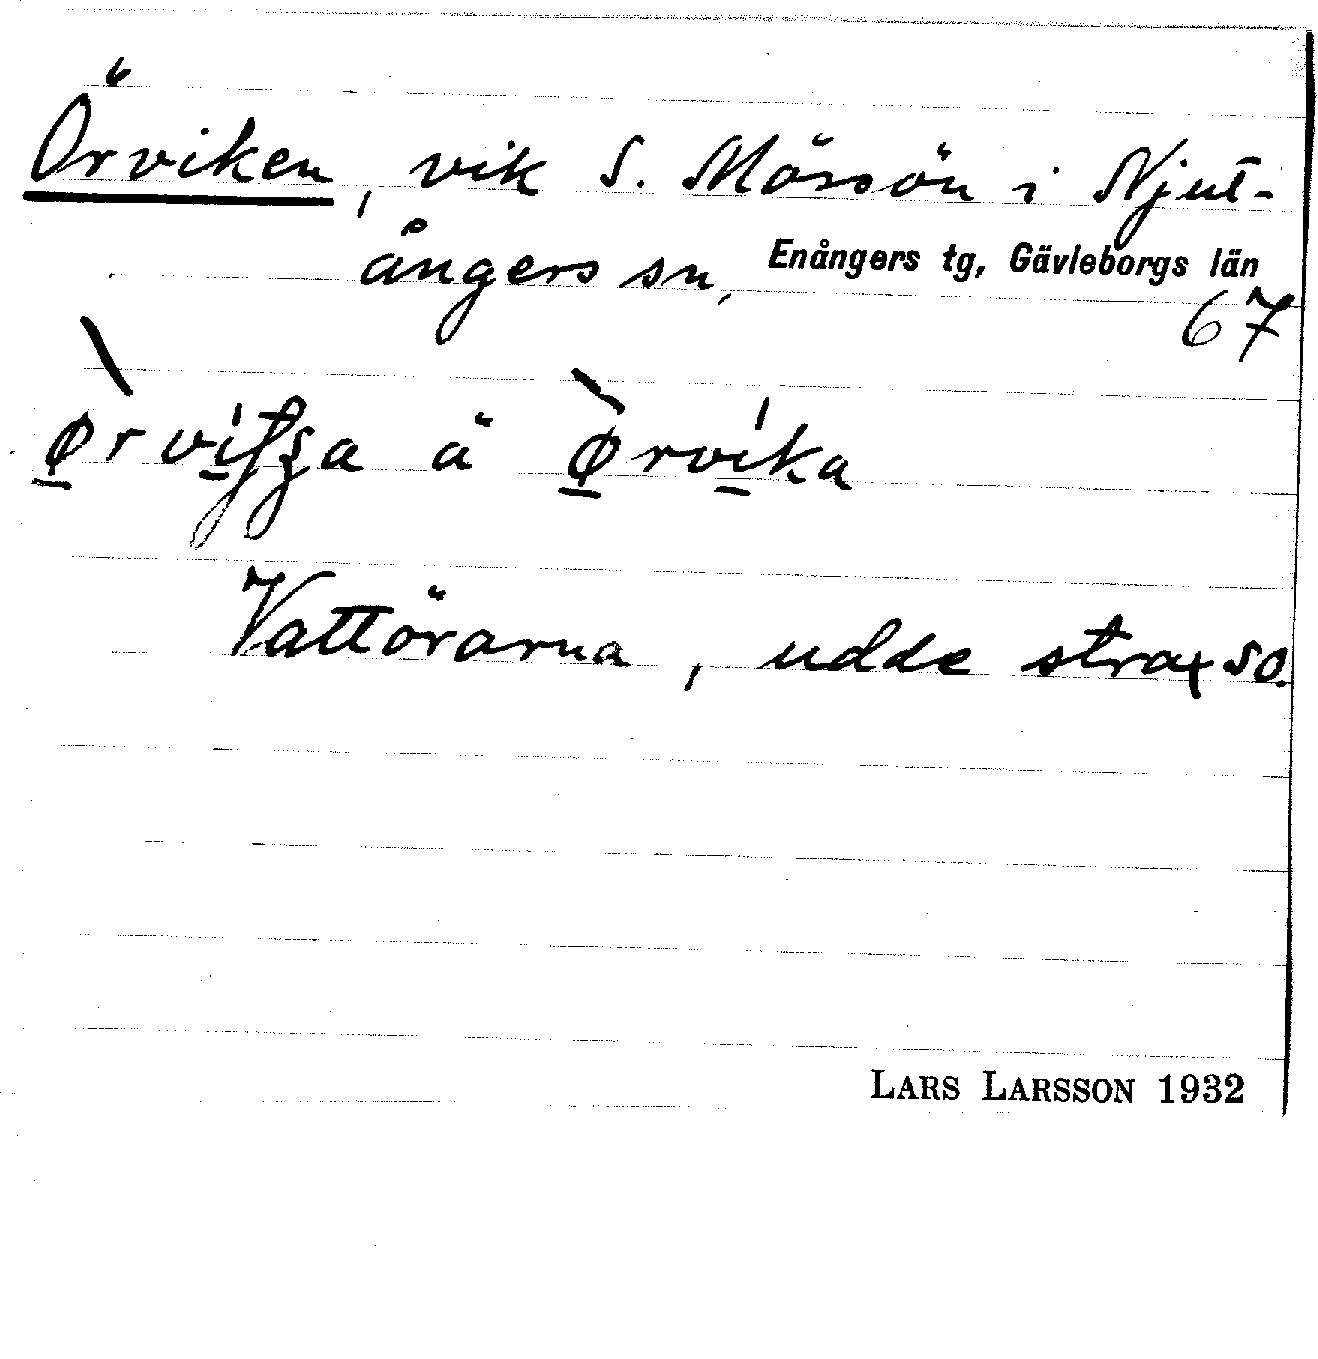 Örviken, vik S. Mössön i Njut-
ångers sn, Enångers tg, Gävleborgs län
67
ä ørvika
Vattörarna, udde strax SO.
LARS LARSSON 1932